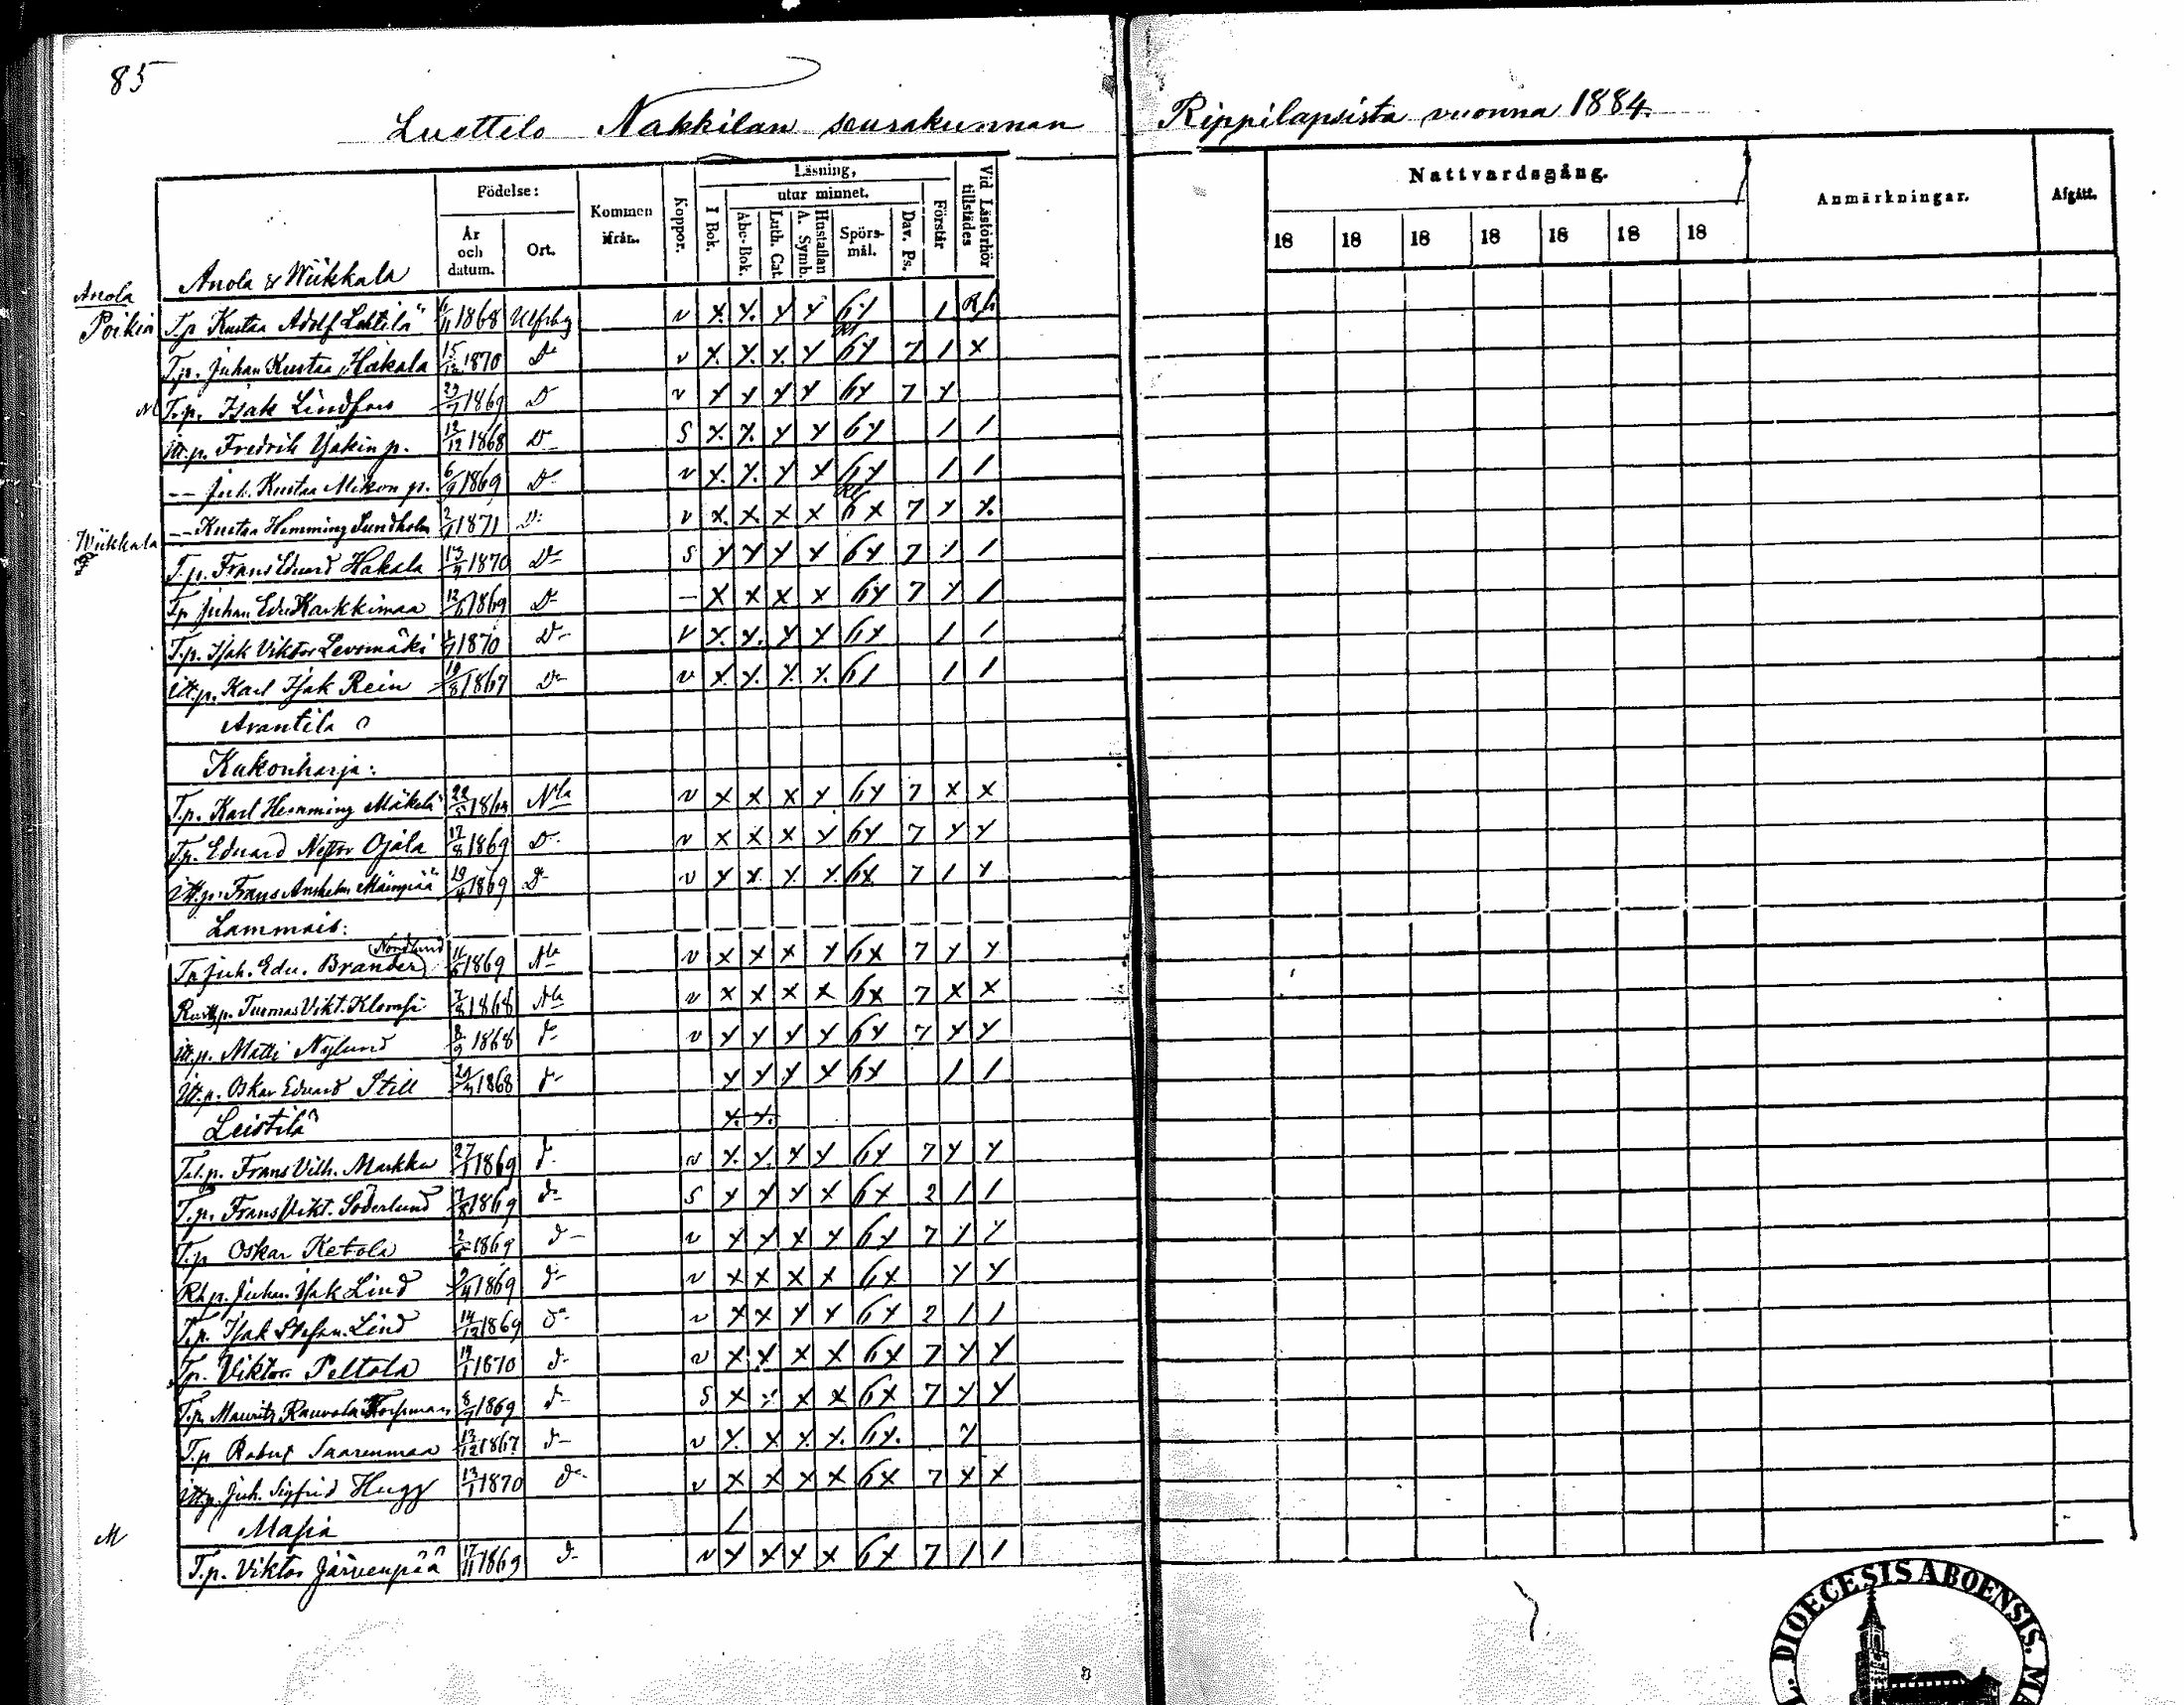 85
Luettelo Nakkilan seurakunnan Rippilapsista vuonna 1884.
Födelse: Kommen ifrån. Koppor. Läsning, Vid Läsförhör tillstädes Nattvardsgång. Anmärkningar. Afgått.
År och datum. Ort. I Bok. utur minnet. Förstår
Abc-Bok. Luth. Cat. Hustaflan A. Symb. Spörsmål. Dav. Ps. 18 18 18 18 18 18 18
Anola & Wiikkala
Anola
Poikia T.p. Kustaa Adolf Lehtilä 1868 Ulfsby v x x x x 6x 1
T.p. Juhan Kustaa Hakala 15/12 1870 Do v x x x x 6x 7 1 x
M T.p. Isak Lindfors 29/7 1869 D v x x x x 6x 7 x
itt.p. Fredrik Yjakin p. 12/12 1868 D S x x x x 6x 1 1
-- Juh. Kustaa Mikon p. 6/9 1869 D v x x x x 6x 1 1
-- Kustaa Hemming Sundholm 2/1 1871 D v x x x x 6x 7 x x
Wiikkala
T.p. Frans Eduard Hakala 1870 D S x x x x 6x 7 1 1
T.p. Juhan Edv. Karkkimaa 1869 D – x x x x 6x 7 x 1
T.p. Isak Viktor Levomäki 1870 D v x x x x 6x 1 1
itt.p. Karl Isak Rein 1867 D v x x x x 61 1 1
Arantila
Kukonharja:
T.p. Karl Hemming Mäkelä Nla v x x x x 6x 7 x x
T.p. Eduard Nestor Ojala 17/8 1869 D v x x x x 6x 7 x x
itt.p. Frans Anshelm 19/4 1869 D v x x x x 6x 7 1 x
Lammais:
Nordlund
T.p. Juh. Edv. Brander 1869 Nla v x x x x 6x 7 x x
Tuomas Vikt. 1868 Nla v x x x x 6x 7 x x
itt.p. Matti Nylund 8/9 1868 d v x x x x 6x 7 x x
itt.p. Oskar Eduard Still 1868 d x x x x 6x 1 1
Leistilä x x
Frans Vilh. Markku 27/1 1869 d v x x x x 6x 7 x x
T.p. Frans Vikt. Söderlund 1869 d S x x x x 6x 2 1 1
T.p. Oskar Ketola 1869 d v x x x x 6x 7 1 1
Juhan Isak Lind 1869 d v x x x x 6x x x
T.p. Isak Stefan Lind 14/12 1869 d v x x x x 6x 2 1 1
T.p. Viktor Peltola 1870 d v x x x x 6x 7 x x
T.p. Mauritz Rauvola 1869 d S x x x x 6x 7 x x
T.p. Robert Saarenmaa 13/12 1867 d v x x x x 6x x
itt.p. Juh. Sigfrid Hugg 13/1 1870 d v x x x x 6x 7 x x
M Masia /
T.p. Viktor Järvenpää 17/11 1869 d v x x x x 6x 7 1 1
DIOECESIS ABOENSIS.